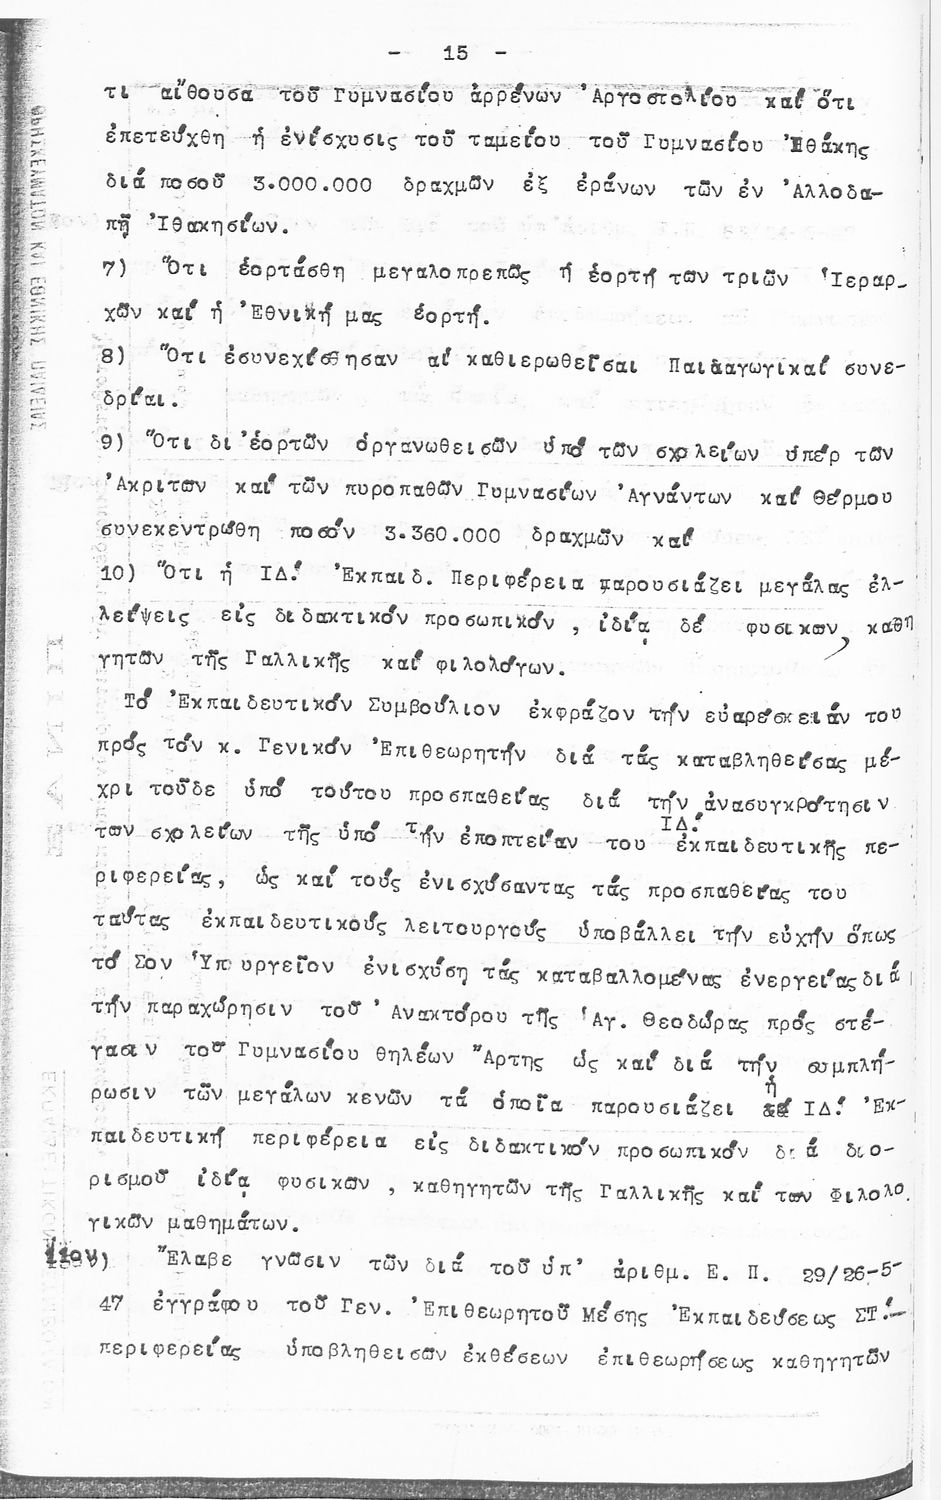 - 15 -
τι αἴθουσα τοῦ Γυμνασίου ἀρρένων Ἀργοστολίου καί ὅτι
ἐπετεύχθη ἡ ἐνίσχυσις τοῦ ταμείου τοῦ Γυμνασίου Ἰθάκης
διά ποσοῦ 3.000.000 δραχμῶν ἐξ ἐράνων τῶν ἐν Ἀλλοδα-
πῇ Ἰθακησίων.
7) Ὅτι ἑορτάσθη μεγαλοπρεπῶς ἡ ἑορτή των τριῶν Ἱεραρ-
χῶν καί ἡ Ἐθνική μας ἑορτή.
8) Ὅτι ἐσυνεχίσθησαν αἱ καθιερωθεῖσαι Παιδαγωγικαί συνε-
δρίαι.
9) Ὅτι δι' ἑορτῶν ὀργανωθεισῶν ὑπό τῶν σχολείων ὑπέρ τῶν
Ἀκριτῶν καί τῶν πυροπαθῶν Γυμνασίων Ἀγνάντων καί Θέρμου
συνεκεντρώθη ποσόν 3.360.000 δραχμῶν καί
10) Ὅτι ἡ ΙΔ! Ἐκπαιδ. Περιφέρεια παρουσιάζει μεγάλας ἐλ-
λείψεις εἰς διδακτικόν προσωπικόν, ἰδίᾳ δέ φυσικων, καθη
γητῶν τῆς Γαλλικῆς καί φιλολόγων.
Τό Ἐκπαιδευτικόν Συμβούλιον ἐκφράζον τήν εὐαρέσκειάν του
πρός τόν κ. Γενικόν Ἐπιθεωρητήν διά τάς καταβληθείσας μέ-
χρι τοῦδε ὑπό τούτου προσπαθείας διά τήν ἀνασυγκρότησιν
των σχολείων τῆς ὑπό τήν ἐποπτείαν του ΙΔ! ἐκπαιδευτικῆς πε-
ριφερείας, ὡς καί τούς ἐνισχύσαντας τάς προσπαθείας του
ταύτας ἐκπαιδευτικούς λειτουργούς ὑποβάλλει τήν εὐχήν ὅπως
τό Σον Ὑπουργεῖον ἐνισχύσῃ τάς καταβαλλομένας ἐνεργείας διά
τήν παραχώρησιν τοῦ Ἀνακτόρου τῆς Ἁγ. Θεοδώρας πρός στέ-
γασιν τοῦ Γυμνασίου θηλέων Ἄρτης ὡς καί διά τήν συμπλή-
ρωσιν τῶν μεγάλων κενῶν τά ὁποῖα παρουσιάζει ἡ ΙΔ! Ἐκ-
παιδευτική περιφέρεια εἰς διδακτικόν προσωπικόν διά διο-
ρισμοῦ ἰδίᾳ φυσικῶν, καθηγητῶν τῆς Γαλλικῆς καί των Φιλολο
γικῶν μαθημάτων.
11ον) Ἔλαβε γνῶσιν τῶν διά τοῦ ὑπ' ἀριθμ. Ε. Π. 29/26-5-
47 ἐγγράφου τοῦ Γεν. Ἐπιθεωρητοῦ Μέσης Ἐκπαιδεύσεως ΣΤ!
περιφερείας ὑποβληθεισῶν ἐκθέσεων ἐπιθεωρήσεως καθηγητῶν